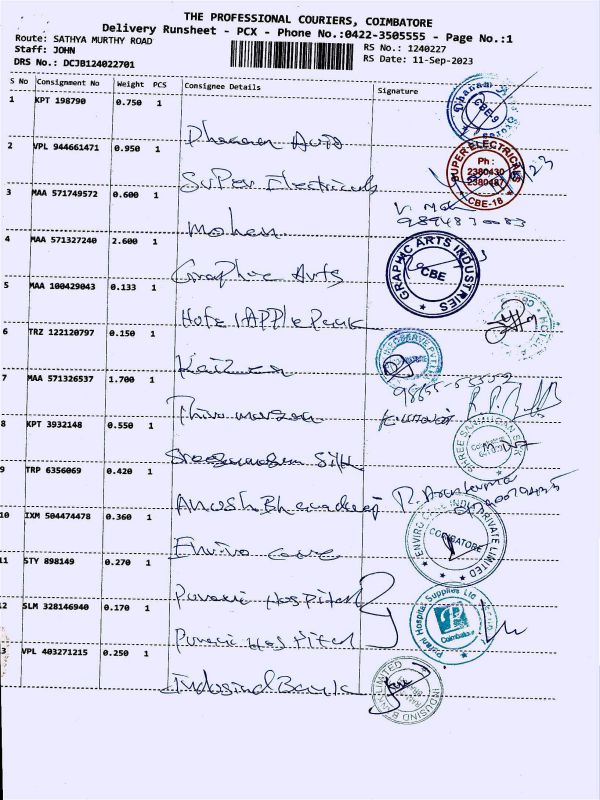 THE PROFESSIONAL COURIERS, COIMBATORE
Delivery Runsheet - PCX - Phone No.:0422-3505555 - Page No.:1
Route: SATHYA MURTHY ROAD
Staff: JOHN
DRS No.: DCJB124022701
RS No.: 1240227
RS Date: 11-Sep-2023
S No Consignment No Weight PCS Consignee Details Signature
1 KPT 198790 0.750 1
CBE-9
Dhanam Auto
2 VPL 944661471 0.950 1
SUPER ELECTRICALS
Ph :
2380430
2380487
CBE-18
Super Electricals
3 MAA 571749572 0.600 1
Mohan
4 MAA 571327240 2.600 1
GRAPHIC ARTS INDUSTRIES
CBE
Graphic Arts
5 MAA 100429043 0.133 1
Hotel Apple Park
6 TRZ 122120797 0.150 1
7 MAA 571326537 1.700 1
8 KPT 3932148 0.550 1
SHREE SANMUGAN SILK
9 TRP 6356069 0.420 1
10 IXM 504474478 0.360 1
ENVIRO CARE INDIA PRIVATE LIMITED
COIMBATORE
Enviro care
11 STY 898149 0.270 1
Purani Hospital
12 SLM 328146940 0.170 1
Purani Hospital Supplies Ltd
Coimbatore
Purani Hospital
3 VPL 403271215 0.250 1
INDUSIND BANK LIMITED
Indusind Bank